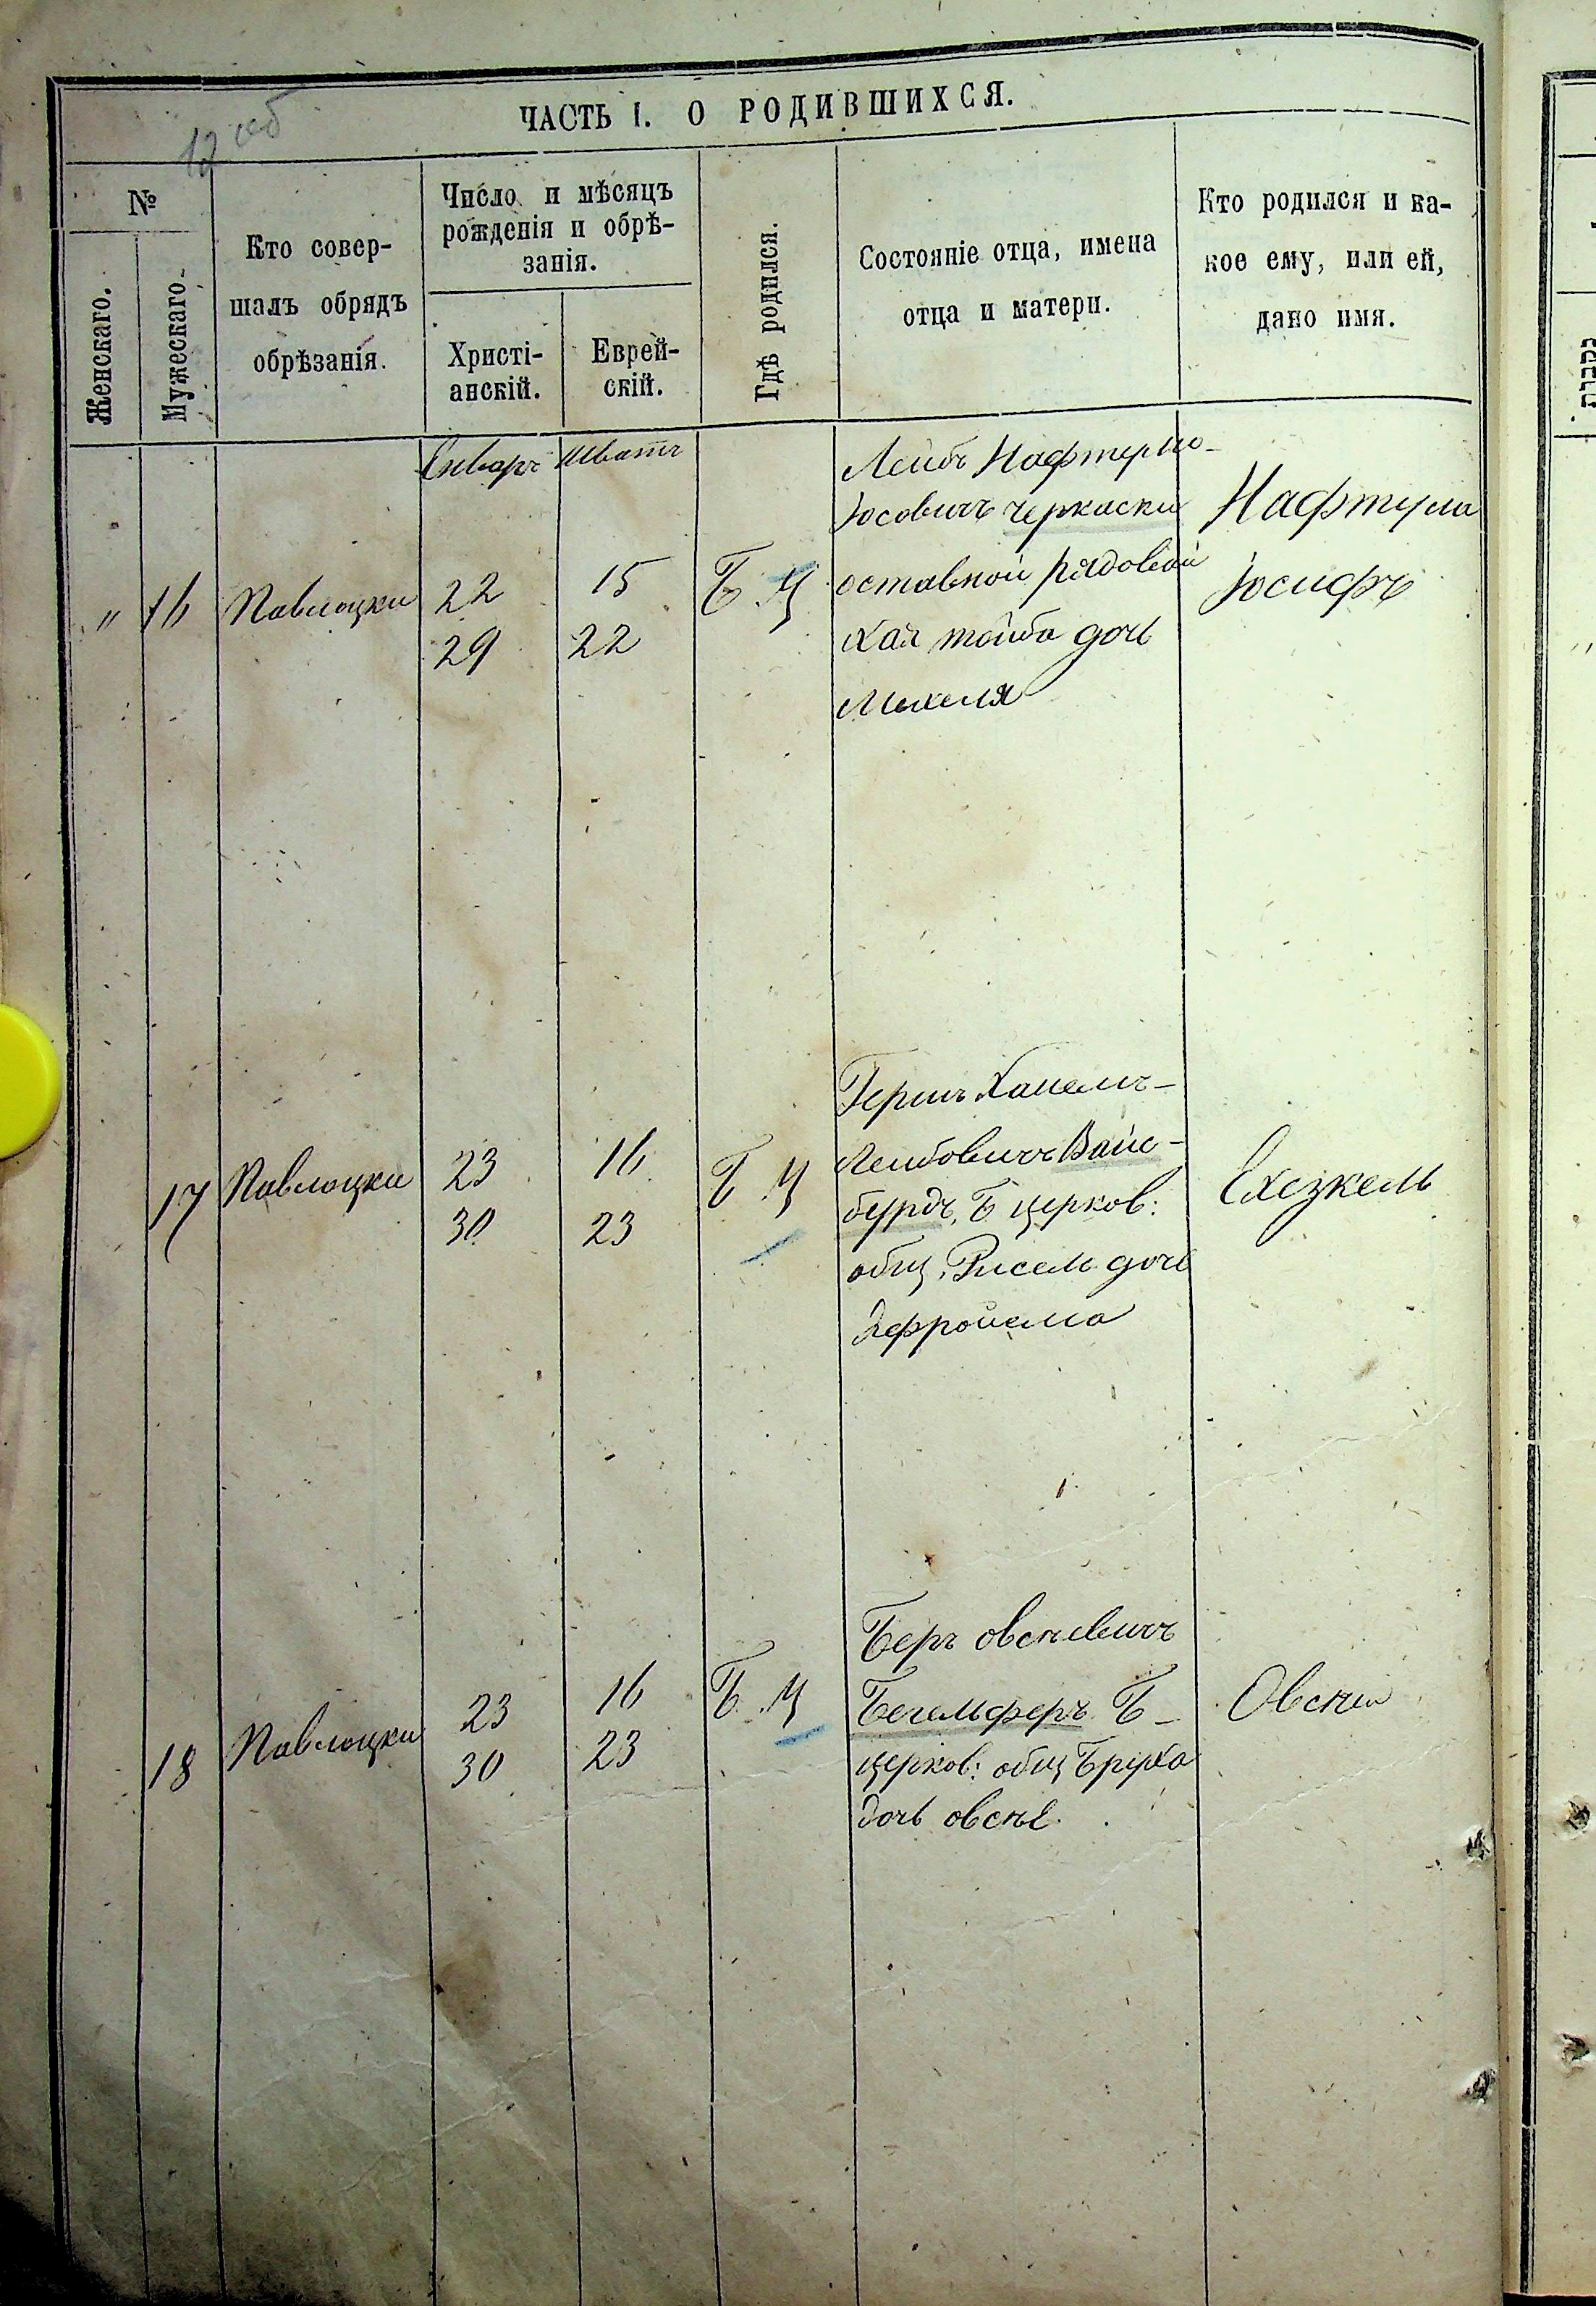 12 об
ЧАСТЬ I. О РОДИВШИХСЯ.
№
Женскаго.
Мужескаго.
Кто совер-
шалъ обрядъ
обрѣзанія.
Число и мѣсяцъ
рожденія и обрѣ-
занія.
Христі-
анскій.
Еврей-
скій.
Гдѣ родился.
Состояніе отца, имена
отца и матери.
Кто родился и ка-
кое ему, или ей,
дано имя.
Енваръ Шватъ
" 16 Павлоцки 22 15 Б Ц
29 22
Лейбъ Нафтерио-
Іосовичъ черкаски
оставной рядовой
Хая тойба дочь
Михеля
Нафтула
Іосифъ
17 Павлоцки 23 16 Б Ц
30 23
Гершъ Ханель-
Лейбовичъ Вайс-
бурдъ, Б церков:
общ, Рисель дочь
Эефройема
Ехезкель
18 Павлоцки 23 16 Б Ц
30 23
Беръ овсѣевичъ
Бегельферъ Б-
церков: общ Бруха
дочь овсѣе
Овсѣй